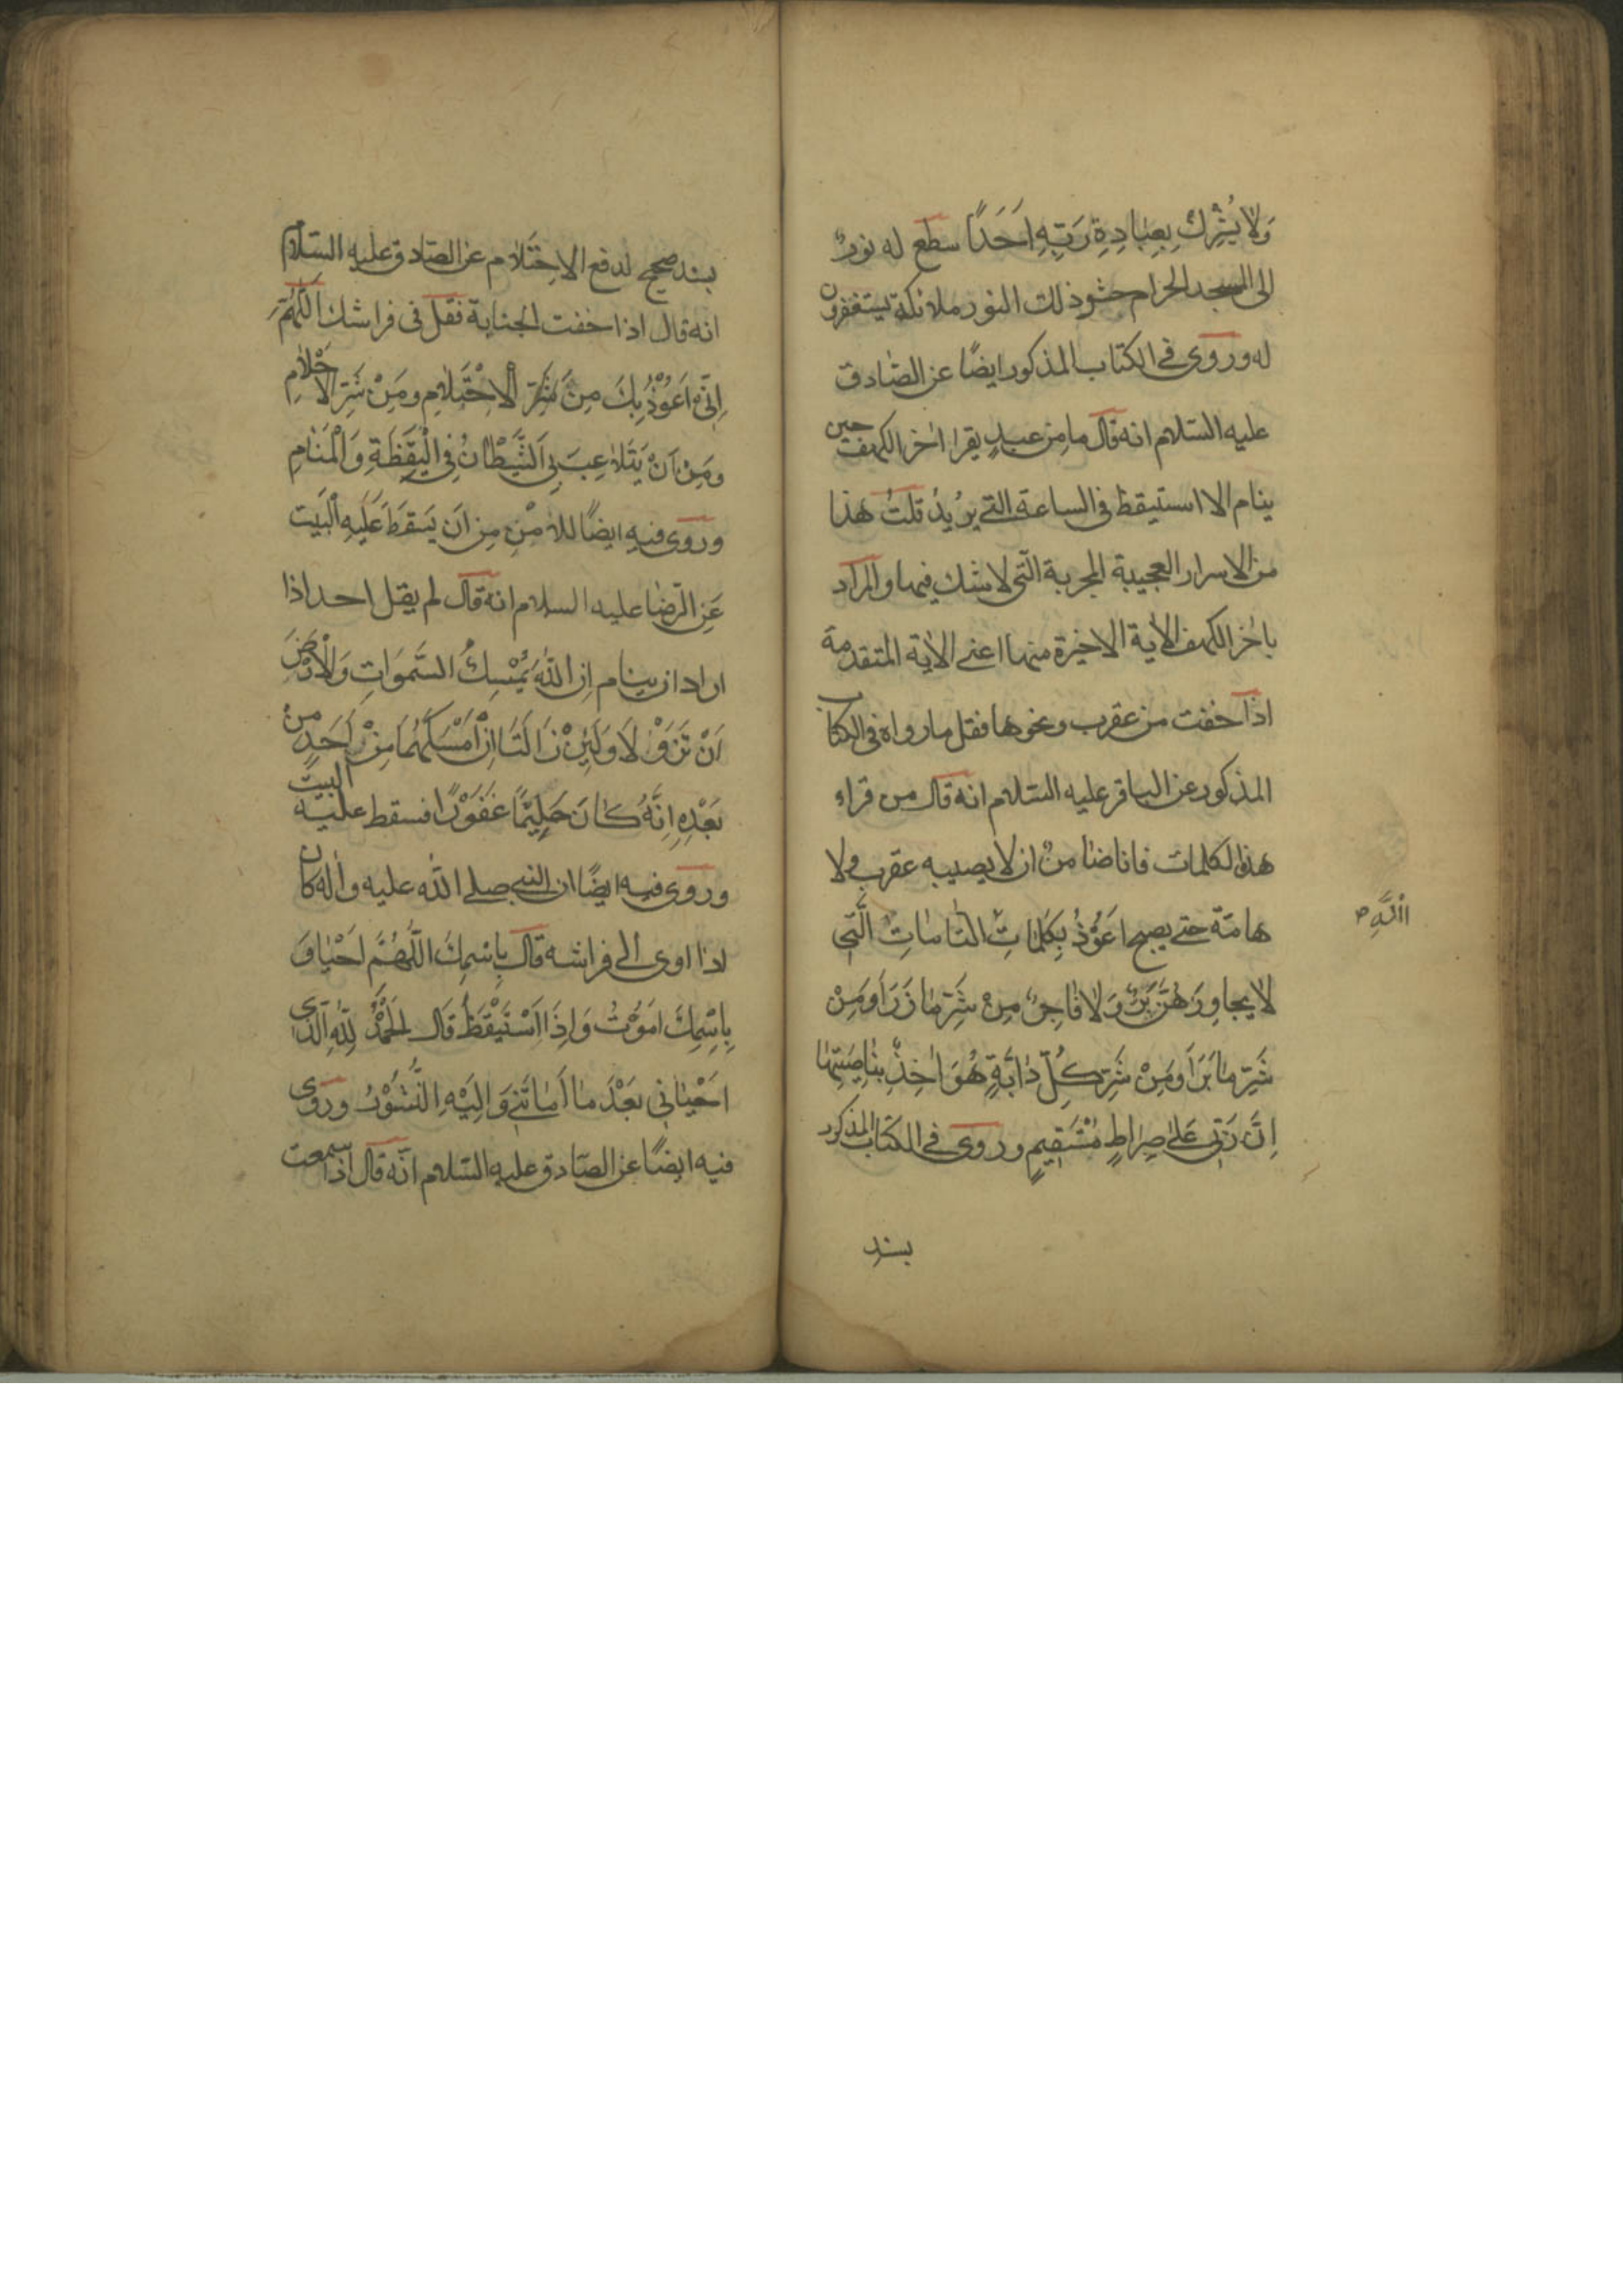 وَلَا يُشْرِكْ بِعِبَادَةِ رَبِّهِ اَحَدًا سطع له نورٌ
الى المسجد الحرام حشو ذلك النور ملائكة يستغفرون
له وروى فى الكتاب المذكور ايضًا عن الصّادق
عليه السّلام انه قال ما من عبدٍ يقرا اخر الكهف حين
ينام الا استيقظ فى الساعة التى يريد قلتُ هذا
من الاسرار العجيبة المجربة التى لا شك فيها والمراد
باخر الكهف الأية الاخيرة منها اعنى الاية المتقدمة
اذا خفت من عقرب ونحوها فقل ما رواه فى الكتاب
المذكور عن الباقر عليه السّلام انه قال من قراء
هذه الكلمات فانا ضامنٌ ان لا يصيبه عقرب ولا
هامّة حتى يصبح اَعُوْذُ بِكَلِمَاتِ التَّامَّاتِ الَّتِى
اللَّهِ
لا يجاوِزُهُنَّ بَرٌّ وَلَا فَاجِرٌ مِنْ شَرِّ مَا ذَرَاَ وَمِنْ
شَرِّ مَا بَرَاَ وَمِنْ شَرِّ كُلِّ دَابَّةٍ هُوَ اٰخِذٌ بِنَاصِيَتِهَا
اِنَّ رَبِّى عَلىٰ صِرَاطٍ مُسْتَقِيمٍ وروى فى الكتاب المذكور
بسند
بسند صحيح لدفع الاحتلام عن الصّادق عليه السّلام
انه قال اذا خفت الجنابة فقل فى فراشك اَللّٰهُمَّ
اِنِّى اَعُوْذُ بِكَ مِنَ شَرِّ الْاِحْتِلَامِ وَمِنْ شَرِّ الْاَحْلَامِ
وَمِنْ اَنْ يَتَلَاعِبَ بِىَ الشَّيْطَانُ فِى الْيَقَظَةِ وَالْمَنَامِ
وروى فيه ايضًا للامن من ان يَسقطَ عَلَيهِ الْبَيت
عن الرّضا عليه السلام انه قال لم يقل احد اذا
اراد ان ينام اِنَّ اللّٰهَ يُمْسِكُ السَّمٰوَاتِ وَالْاَرْضَ
اَنْ تَزُوْلَا وَلَئِنْ زَالَتَا اِنْ اَمْسَكَهُمَا مِنْ اَحَدٍ مِنْ
بَعْدِهِ اِنَّهُ كَانَ حَلِيْمًا غَفُوْرًا فسقط عليه البيت
وروى فيه ايضًا ان النبى صلى الله عليه واله كان
اذا اوى الى فراشه قال بِاسْمِكَ اللّٰهُمَّ اَحْيَا وَ
بِاسْمِكَ اَمُوْتُ وَاِذَا اسْتَيْقَظَ قَالَ اَلْحَمْدُ لِلّٰهِ الَّذِى
اَحْيَانِى بَعْدَ مَا اَمَاتَنِى وَاِلَيْهِ النُّشُوْرُ وروى
فيه ايضًا عن الصّادق عليه السّلام انّه قال اذا سمعت